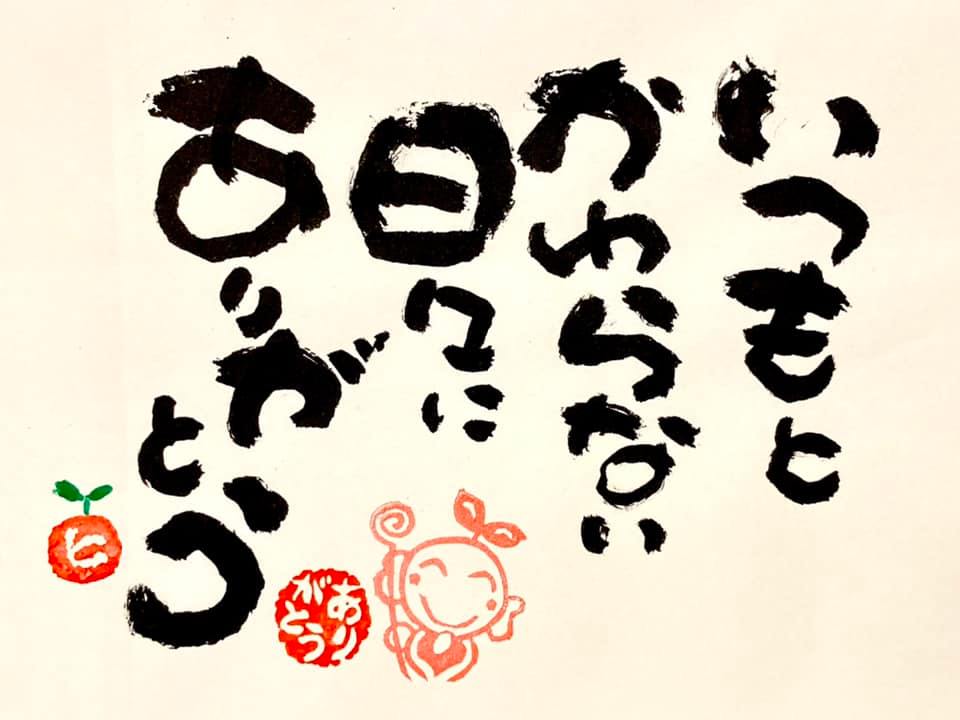 いつもと
かわらない
日々に
ありがとう
ありがとう
ヒ